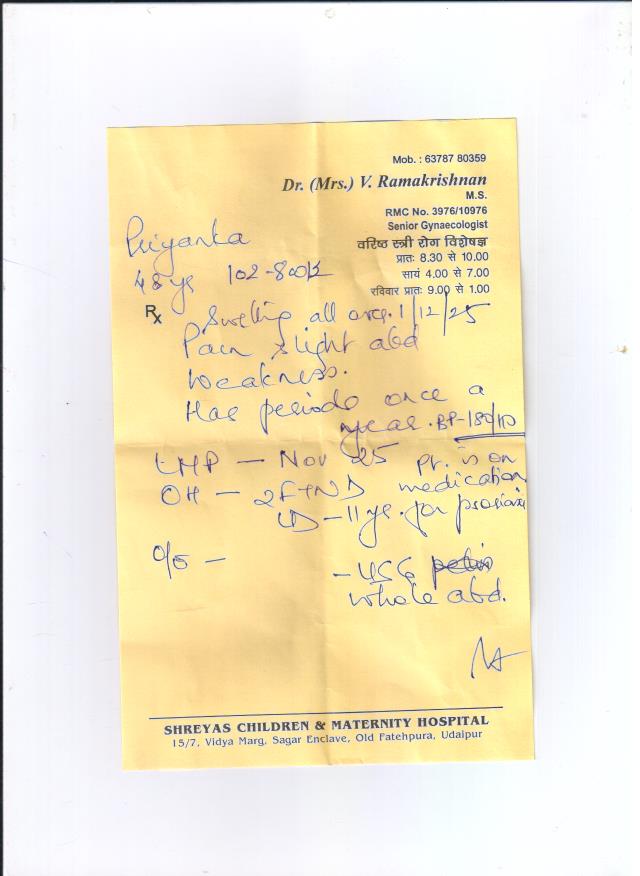 Mob. : 63787 80359
Dr. (Mrs.) V. Ramakrishnan
M.S.
RMC No. 3976/10976
Senior Gynaecologist
वरिष्ठ स्त्री रोग विशेषज्ञ
प्रातः 8.30 से 10.00
सायं 4.00 से 7.00
रविवार प्रातः 9.00 से 1.00
Priyanka
48 ys 102-800
Rx
Swelling all over. 1/12/25
Pain slight abd
Weakness.
Has periods once a
year. BP-180/110
LMP - Nov 25 Pt. is on
OH - 2FTND medication
LD - 11 ys. for psoriasis
O/E -
- USG pelvis
whole abd.
SHREYAS CHILDREN & MATERNITY HOSPITAL
15/7, Vidya Marg, Sagar Enclave, Old Fatehpura, Udaipur